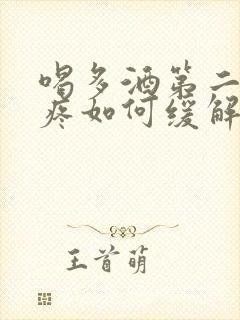 喝多酒第二
疼如何缓解
王首萌